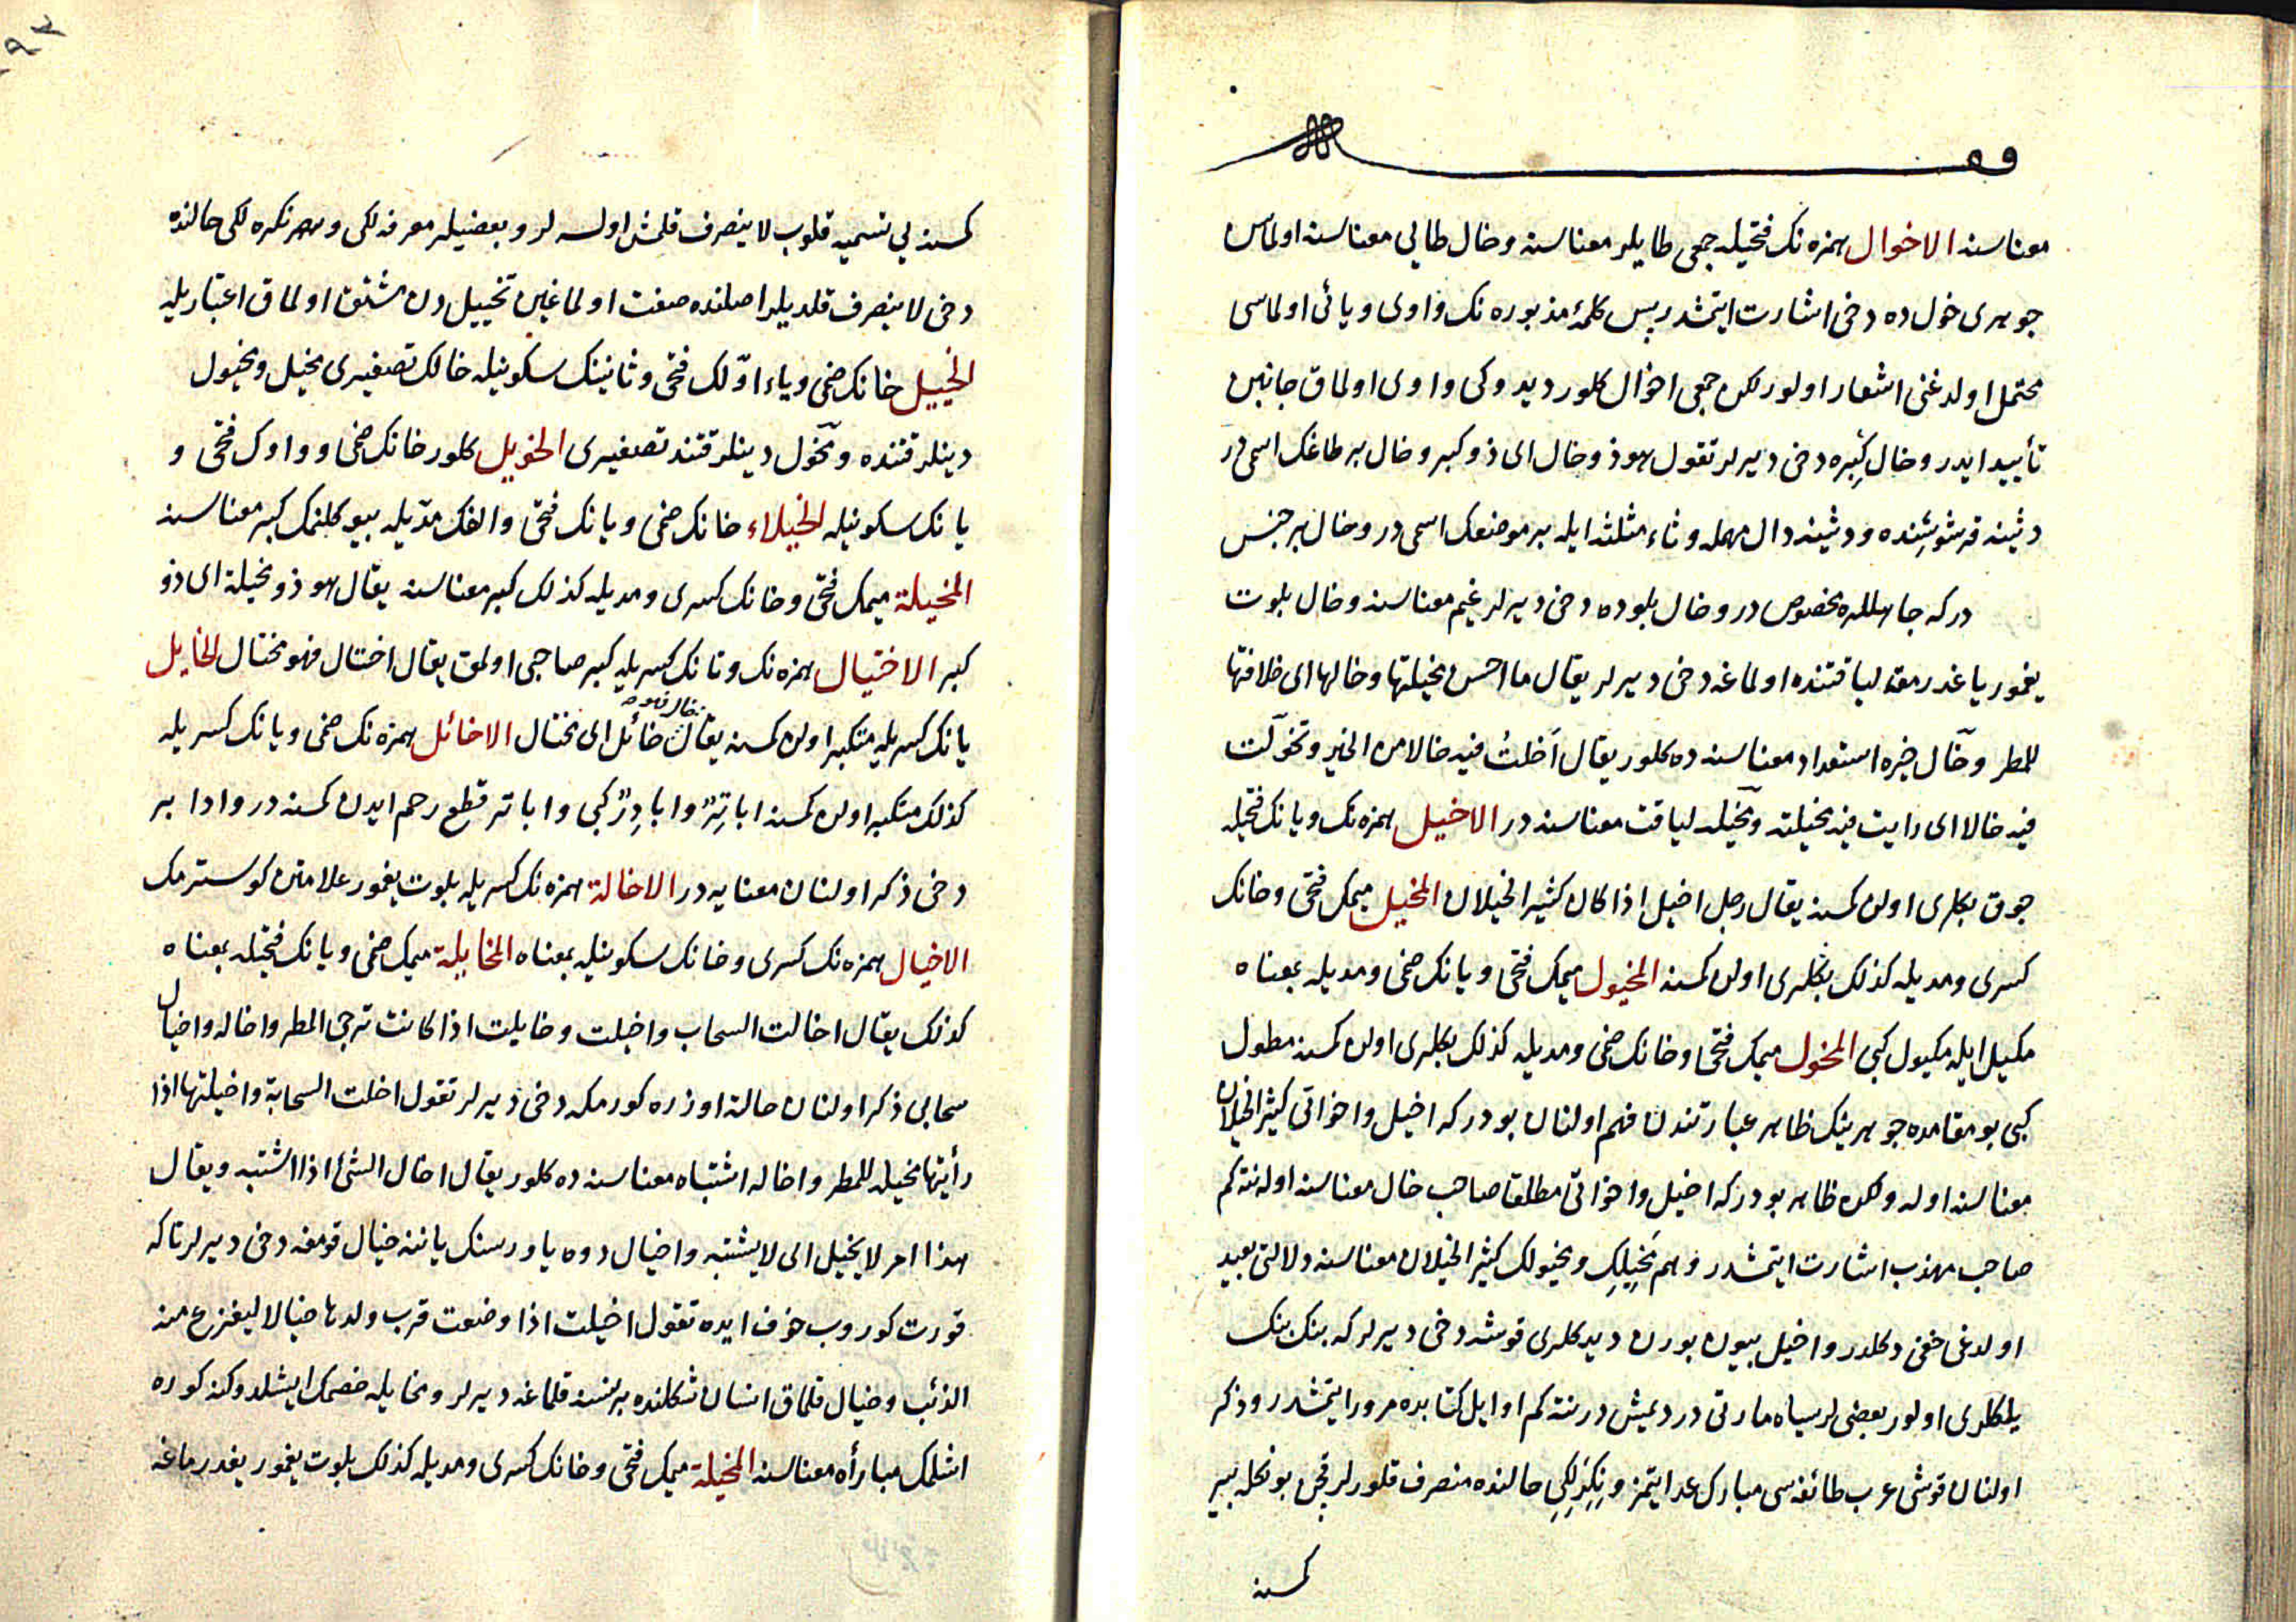 وقف
معناسنه الاخوال همزه نك فتحيله جمعى طايلر معناسنه وخال طايى معناسنه اولماسن
جوهرى خول ده دخى اشارت ايتمشدر پس كلمۀ مذبوره نك واوى ويائى اولماسى
محتمل اولدغنى اشعار اولور لكن جمعى اخوال كلور ديدوكى واوى اولماق جانبين
تأييد ايدر وخال كِبِره دخى ديرلر تقول هو ذو خال اى ذو كبر وخال بر طاغك اسمى در
دثينه قرشوسِنده ودثينه دال مهمله وثاء مثلثه ايله بر موضعك اسمى در وخال بر جنس
در كه جاهللره مخصوص در وخال بلوده دخى ديرلر غيم معناسنه وخال بلوت
يغمور ياغدرمقه لياقتنده اولماغه دخى ديرلر يقال ما احسن مخيلتها وخالها اى خلاقتها
للمطر وخال خيره استعداد معناسنه ده كلور يقال اَخلتُ فيه خالا من الخير وتخوّلت
فيه خالا اى رايت فيه مخيلته ومخيله لياقت معناسنه در الاخيل همزه نك ويانك فتحيله
جوق بكلرى اولن كمسنه يقال رجل اخيل اذا كان كثير الخيلان المخيل ميمك فتحى وخانك
كسرى ومديله كذلك بكلرى اولن كمسنه المخيول ميمك فتحى ويانك ضمى ومديله بمعناه
مكيل ايله مكيول كبى المخول ميمك فتحى وخانك ضمى ومديله كذلك بكلرى اولن كمسنه مطول
كبى بو مقامده جوهرينك ظاهر عبارتندن فهم اولنان بودر كه اخيل واخواتى كثير الخيلان
معناسنه اوله ولكن ظاهر بودر كه اخيل واخواتى مطلقا صاحب خال معناسنه اوله نته كم
صاحب مهذب اشارت ايتمشدر وهم مَخِيلِك ومخيولك كثير الخيلان معناسنه دلالتى بعيد
اولدغى خفى دكلدر واخيل بيون بورن ديدكلرى قوشه دخى ديرلر كه بنك بنك
يلكلرى اولور بعضى لر سياه مارتى در ديمش در نته كم اوايل كتابده مرور ايتمشدر وذكر
اولنان قوشى عرب طائفه سى مبارك عد ايتمز ونكِرَلِكِى حالنده منصرف قلورلر قچن بونكله بر
كمسنه
كمسنه يى تسميه قلوب لا ينصرف قلمش اولسه لر وبعضيلر معرفه لكى وهم نكره لكى حالنده
دخى لا ينصرف قلديلر اصلنده صفت اولماغين تخييل دن مشتق اولماق اعتباريله
الخييل خانك ضمى وياء اوّلك فتحى وثانينك سكونيله خالك تصغيرى مخيل ومخيول
دينلر قتنده ومخول دينلر قتنده تصغيرى الخويل كلور خانك ضمى وواوك فتحى و
يانك سكونيله الخيلاء خانك ضمى ويانك فتحى والفك مدّيله بيوكلنمك كبر معناسنه
المخيلة ميمك فتحى وخانك كسرى ومديله كذلك كبر معناسنه يقال هو ذو مخيلة اى ذو
كبر الاختيال همزه نك وتانك كسريله كبر صاحبى اولمق يقال اختال فهو مختال الخايل
يانك كسريله متكبر اولن كمسنه يقال خال فهو خائل اى مختال الاخائل همزه نك ضمى ويانك كسريله
كذلك متكبر اولن كمسنه اباتِرٌ وابادِرٌ كبى واباتر قطع رحم ايدن كمسنه در وادابر
دخى ذكر اولنان معنايه در الاخالة همزه نك كسريله بلوت يغمور علامتن كوسترمك
الاخيال همزه نك كسرى وخانك سكونيله بمعناه المخايلة ميمك ضمى ويانك فتحيله بمعناه
كذلك يقال اخالت السحاب واخيلت وخايلت اذا كانت ترجى المطر واخاله واخيال
سحابى ذكر اولنان حالة اوزره كورمكه دخى ديرلر تقول اخلت السحابة واخيلتها اذا
رأيتها مخيلة للمطر واخاله اشتباه معناسنه ده كلور يقال اخال الشئ اذا اشتبه ويقال
هذا امر لا يخيل اى لا يشتبه واخيال دوه ياوريسنك ياننه خيال قومغه دخى ديرلر تا كه
قورت كوروب خوف ايده تقول اخيلت اذا وضعت قرب ولدها خيالا ليفزع منه
الذئب وخيال قلماق انسان شكلنده بر نسنه قلماغه ديرلر ومخايله خصمك ايشلدوكنه كوره
اشلمك مباراه معناسنه المخيلة ميمك فتحى وخانك كسرى ومديله كذلك بلوت يغمور يغدرماغه